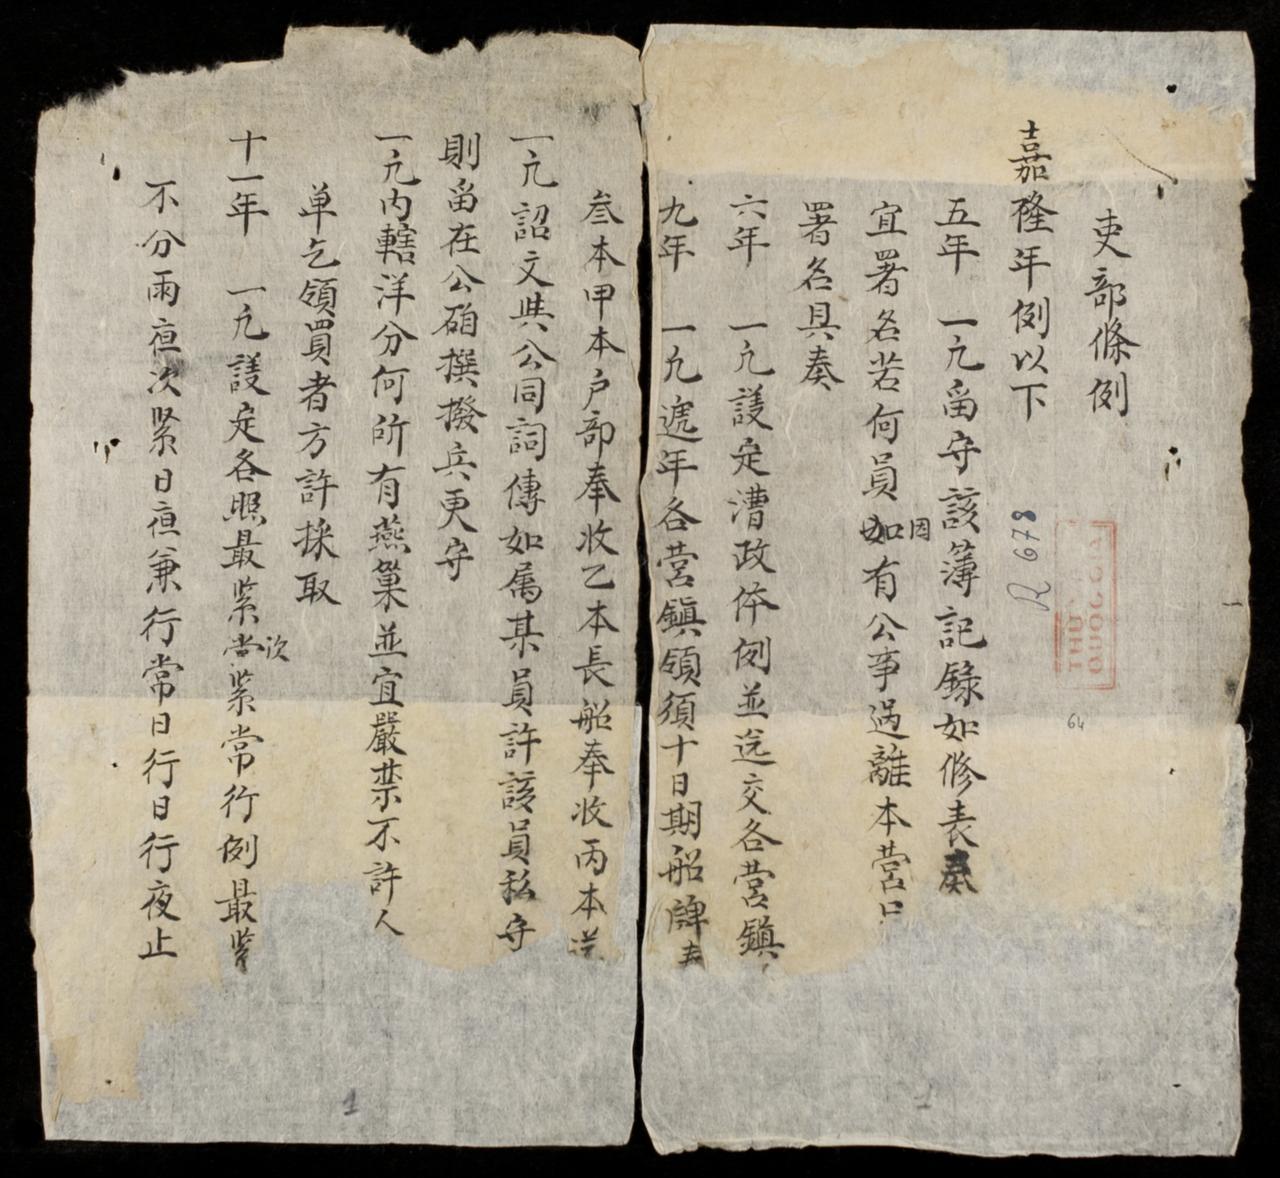 吏部條例
嘉隆年例以下
五年 一凢畱守該簿記録如修表奏
宜署名若何員如因有公事過離本營
署名具奏
六年 一凢議定漕政体例並迻交各營鎭
九年 一凢遞年各營鎭領須十日期船牌
叁本甲本户部奉收乙本長船奉收丙本送
一凢詔文與公同詞傳如属某員許該員私守
則畱在公廨撰撥兵更守
一凢内轄洋分何所有燕巢並宜嚴禁不許人
单乞領買者方許採取
十一年 一凢議定各照最紧次紧常行例最紧
不分雨夜次紧日夜兼行常日行日行夜止
R 678
64
THU
QUOC GIA
1
1